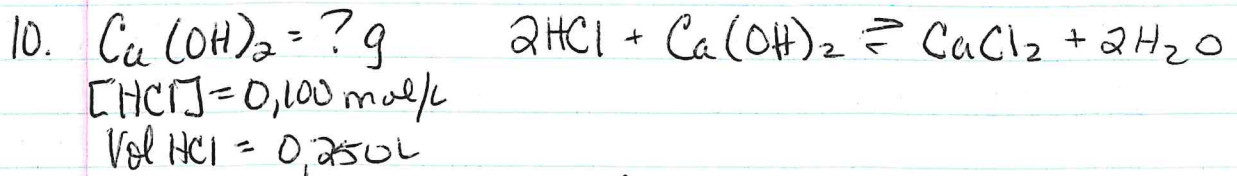 10. Ca(OH)₂ = ? g 2HCl + Ca(OH)₂ ⇌ CaCl₂ + 2H₂O
[HCl] = 0,100 mol/L
Vol HCl = 0,250L